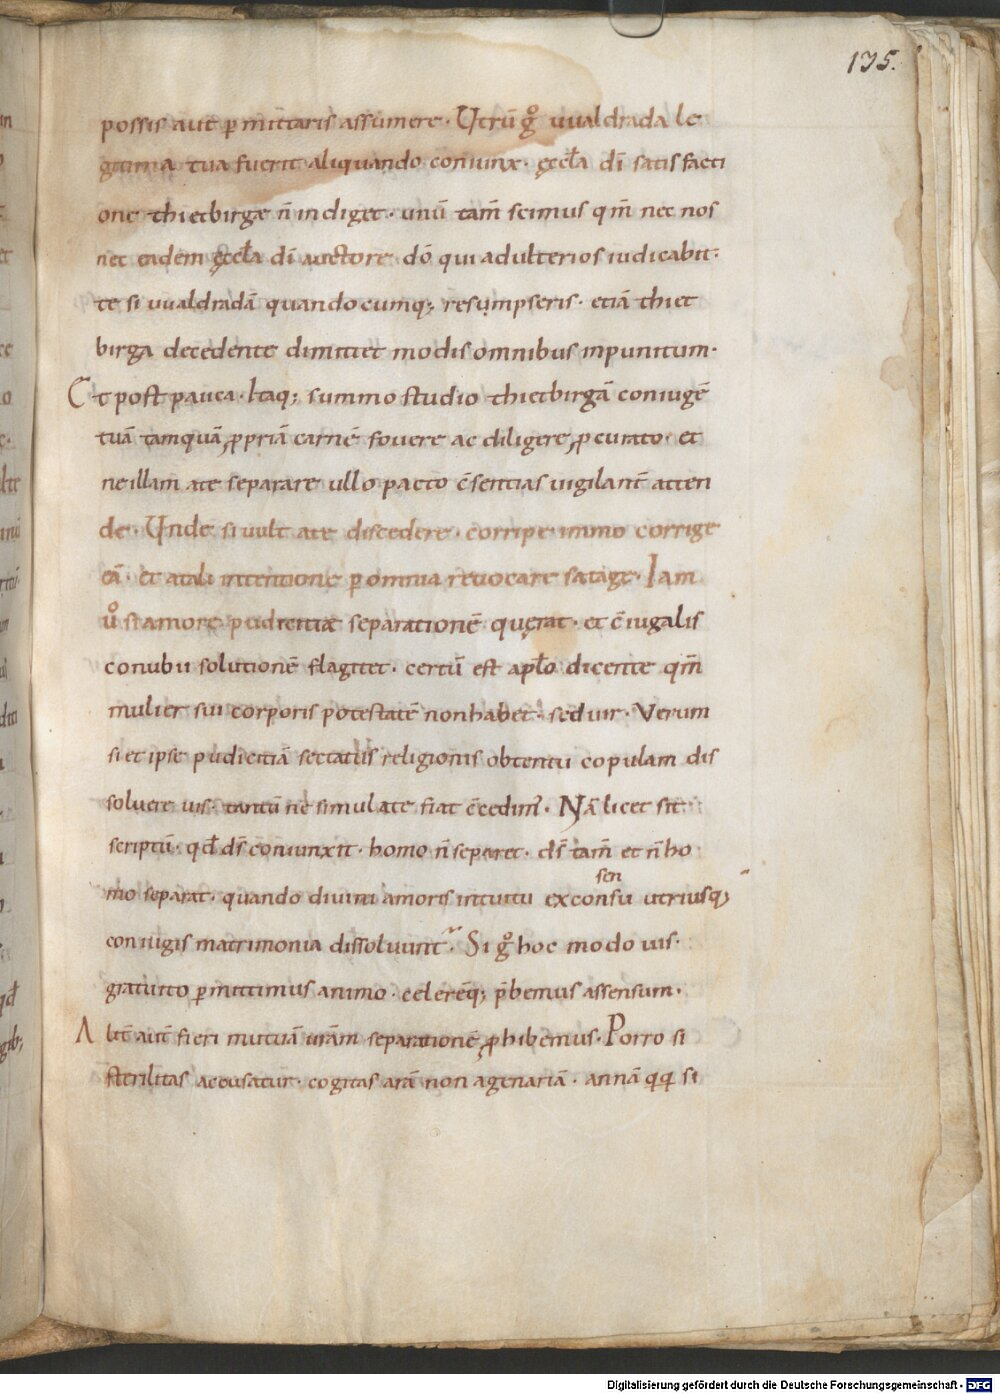 135.
possis aut p̄mittaris assumere· Utrū gͦ uualdrada le
gitima tua fuerit aliquando coniunx· ęccl̄a dī satisfacti
one thietbirgæ n̄ indiget· unū tam̄ scimus qm̄ nec nos
nec eadem ęccl̄a dī auctore dō qui adulterios iudicabit·
te si uualdradā quandocumq; resumpseris· etiā thiet
birga decedente dimittet modis omnibus inpunitum·
Et post pauca· Itaq; summo studio thietbirgā coniugē
tuā tamquā ꝓpriā carnē fovere ac diligere ꝓcurato· et
ne illam a te separare ullo pacto c̄sentias uigilant̄ atten
de· Unde si uult a te discedere· corripe immo corrige
eā· et a tali intentione p̄ omnia reuocare satage· Iam
uͦ si amore pudicitiæ separationē quęrat· et c̄iugalis
conubii solutionē flagitet· certū est apl̄o dicente qm̄
mulier sui corporis potestatē non habet· sed uir· Verum
si et ipse pudicitiā sectatus religionis obtentu copulam dis
soluere uis· tantū ne simulate fiat c̄cedim̄· Nā licet sit
scriptū· qd̄ ds̄ coniunxit· homo n̄ separet· ds̄ tam̄ et n̄ ho
mo separat· quando diuini amoris intuitu ex consu utriusq;
sen
coniugis matrimonia dissoluunt· Si gͦ hoc modo uis·
gratuito p̄mittimus animo· celerēq; p̄bemus assensum·
Alit̄ aut̄ fieri mutuā urām separationē ꝓhibemus· Porro si
sterilitas accusatur· cogitas arā nonagenariā· annā qq si
Digitalisierung gefördert durch die Deutsche Forschungsgemeinschaft - DFG